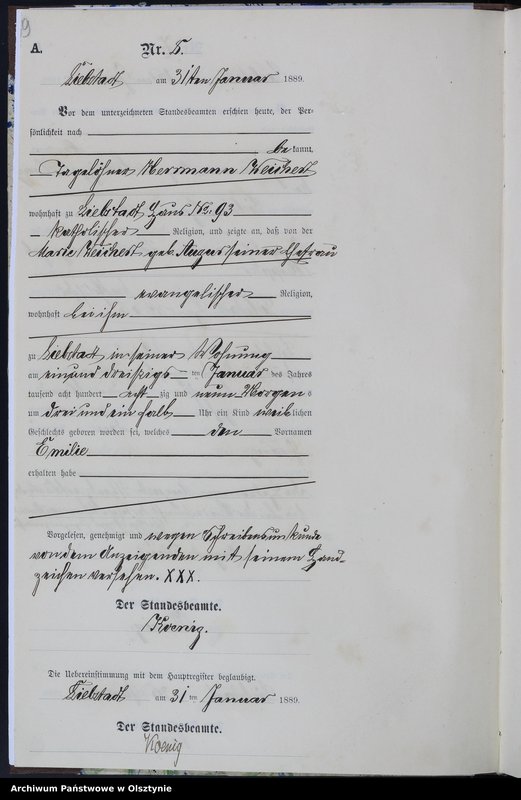 9
A.
Nr. 5.
Liebstadt am 31ten Januar 1889.
Vor dem unterzeichneten Standesbeamten erschien heute, der Per-
sönlichkeit nach
be kannt,
Tagelöhner Herrmann Weichert
wohnhaft zu Liebstadt Haus No. 93
katholischer Religion, und zeigte an, daß von der
Marie Weichert geb. seiner Ehefrau
evangelischer Religion,
wohnhaft bei ihm
zu Liebstadt in seiner Wohnung
am einund dreißigs ten Januar des Jahres
tausend acht hundert acht zig und neun Morgens
um drei und ein halb Uhr ein Kind weiblichen
Geschlechts geboren worden sei, welches den Vornamen
Emilie
erhalten habe
Vorgelesen, genehmigt und wegen Schreibensunkunde
von dem Anzeigenden mit seinem Hand-
zeichen versehen. XXX.
Der Standesbeamte.
Koenig.
Die Uebereinstimmung mit dem Hauptregister beglaubigt.
Liebstadt am 31 ten Januar 1889.
Der Standesbeamte.
Koenig
Archiwum Państwowe w Olsztynie